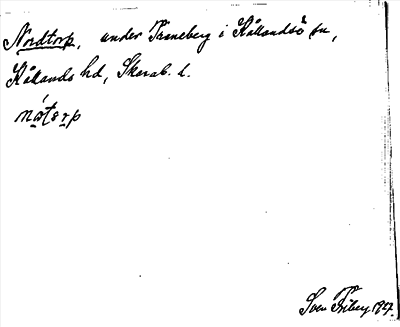 Nordtorp, under Traneberg i Kållandsö sn,
Kållands hd, Skarab. l.
nɷ́tɷrp
Sven Friberg 1927.